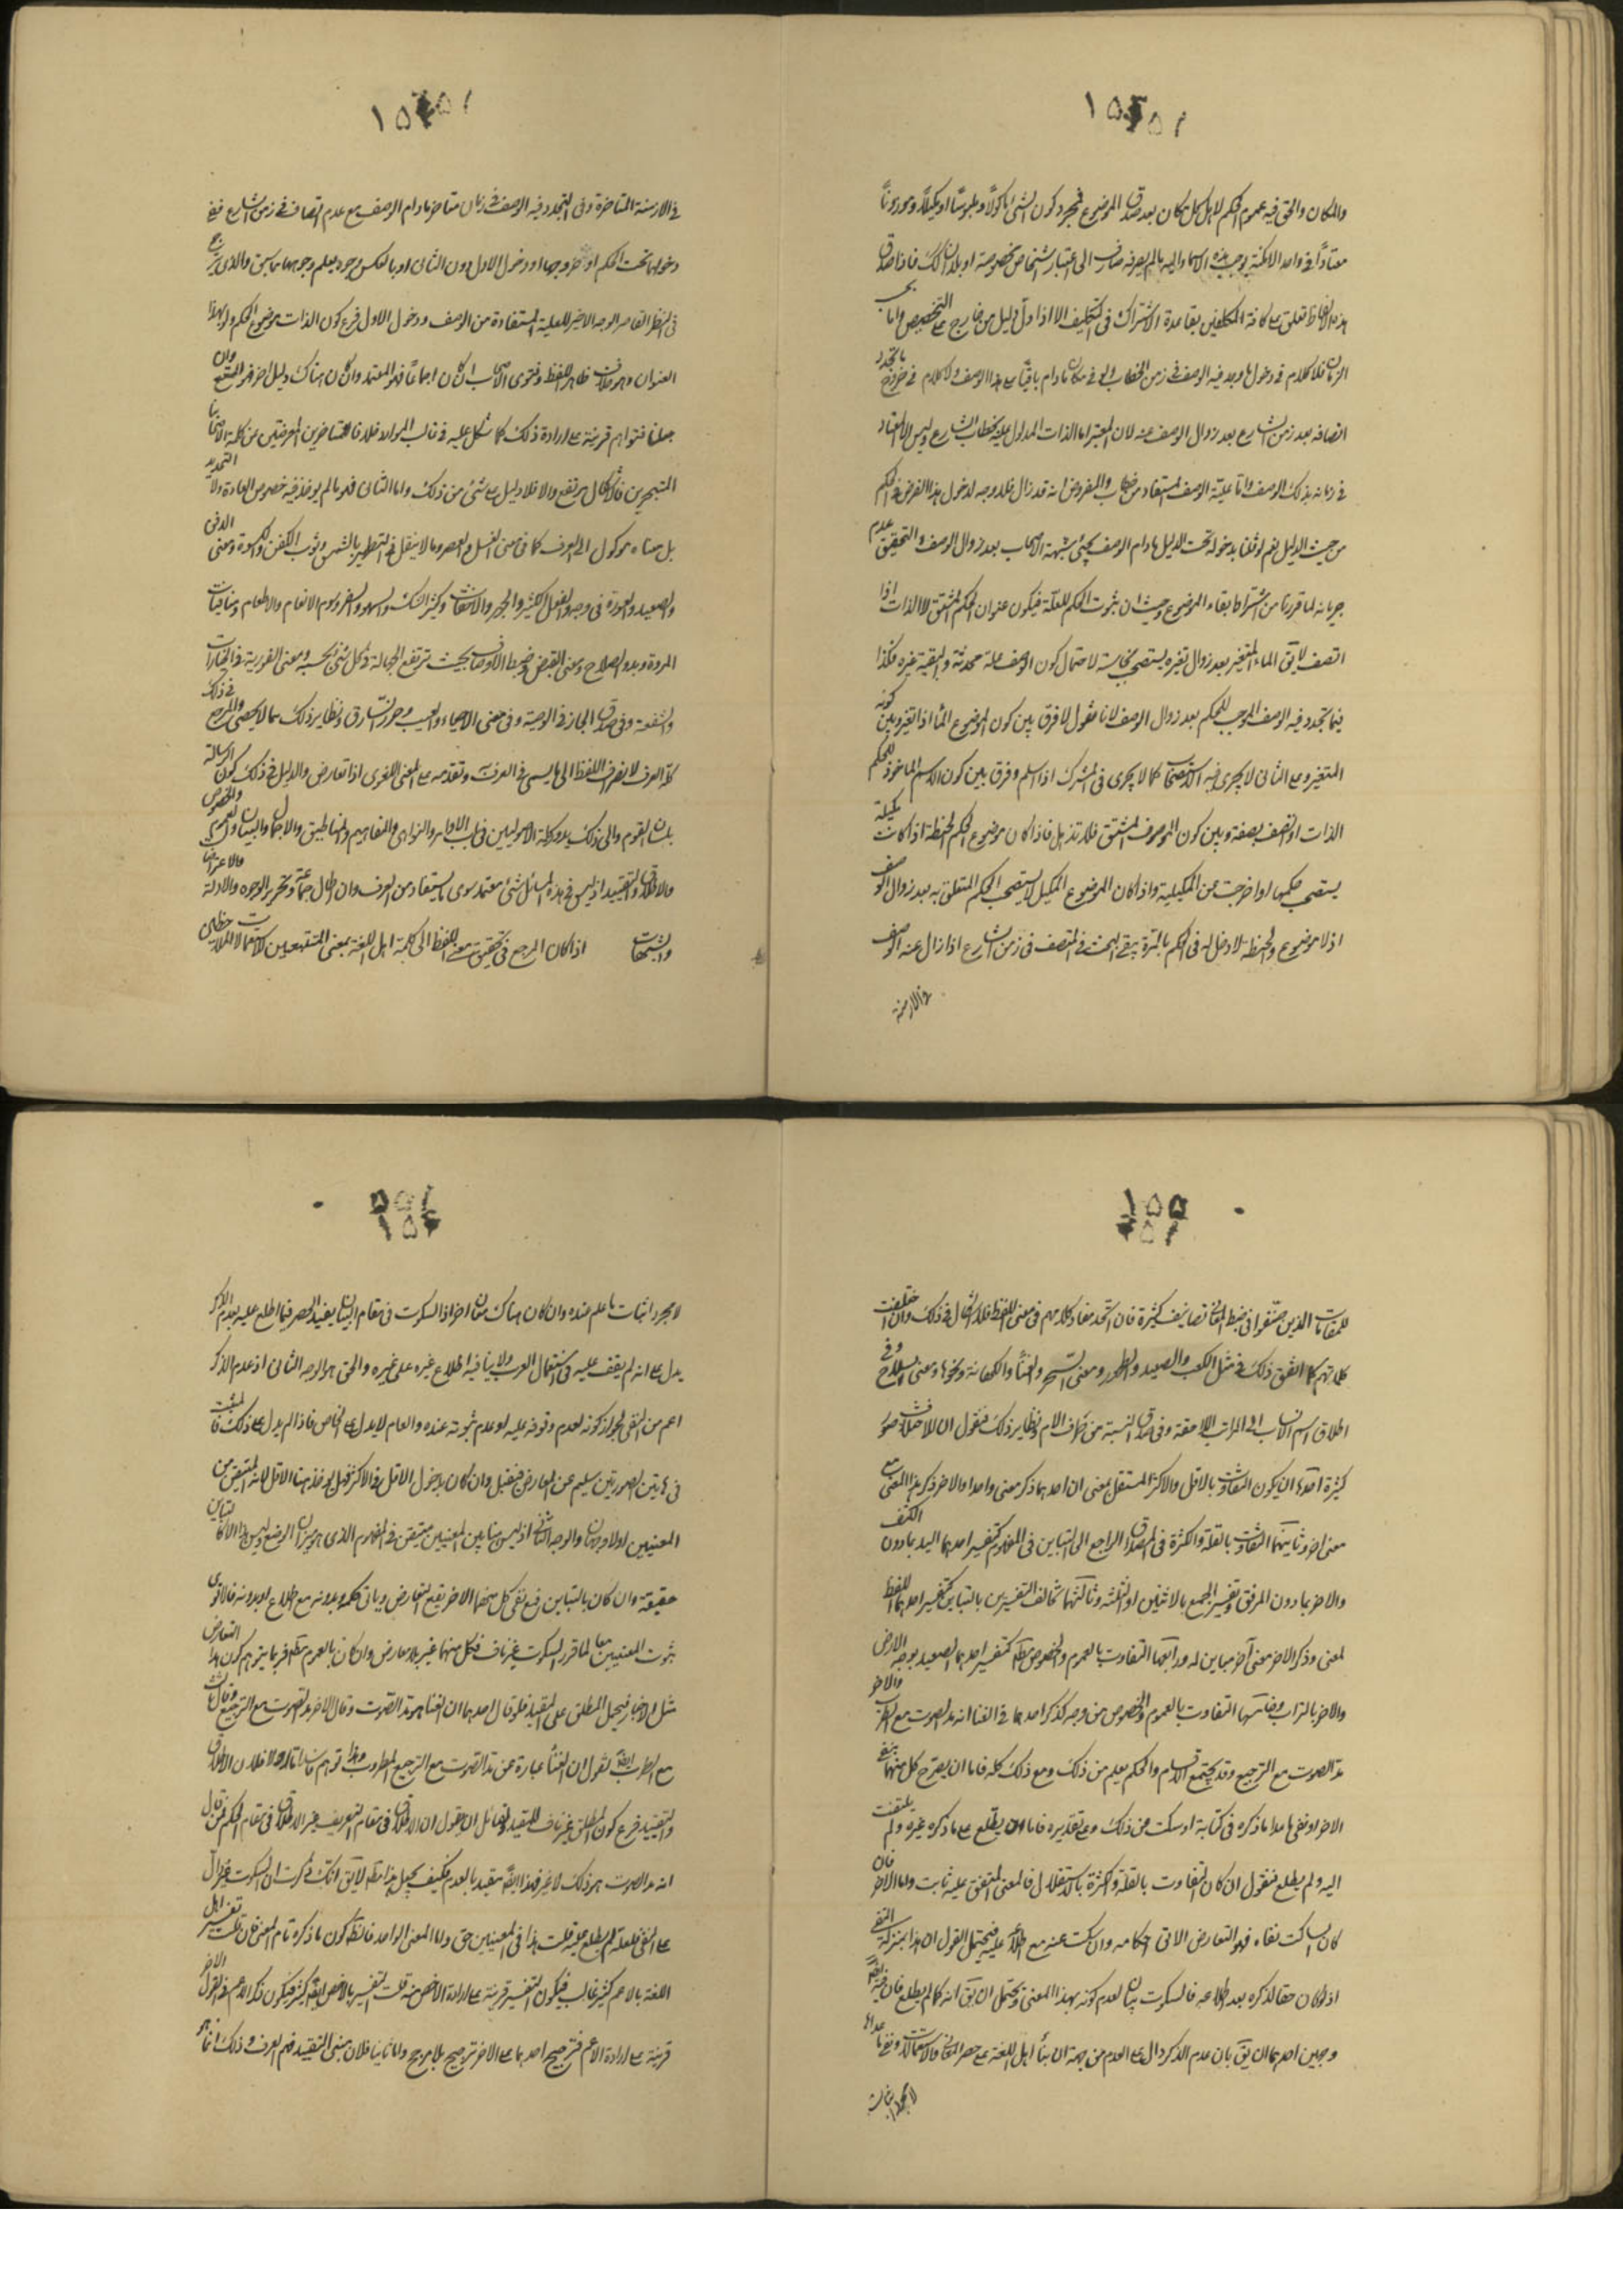 والمكان والحق فيه عموم الحكم لاهل كل مكان بعد صدق الموضوع فمجرد كون الشئ مأكولا وملبوسا او مكيلا وموزونا
معتادا في واحد الامكنة يوجب هذه الاسماء والم يصرفه صارف الى اعتبار اشخاص مخصوصة او بلدان كك فاذا صدق
هذه الالفاظ تعلق على كافة المكلفين بقاعدة الاشتراك في التكليف الا اذا دل دليل من خارج على التخصيص واما بحسب
الزمان فلا كلام في دخول ما وجد فيه الوصف في زمن الخطاب ولو في مكان مادام باقيا على هذا الوصف ولا كلام في خروج ما تجدد
اتصافه بعد زمن الشارع بعد زوال الوصف عنه لان المعتبر اما الذات المدلول عليه بخطاب الشارع وليس الا المعتاد
في زمانه بذلك الوصف واما علية الوصف المستفاد من خطاب والمفروض انه قد زال فلا وجه لدخول هذا الفرض في الحكم
من حيث الدليل نعم لو قلنا بدخوله تحت الدليل مادام الوصف يجئ شبهة الاصحاب بعد زوال الوصف والتحقيق عدم
جريانه لما قررنا من اشتراط بقاء الموضوع وحيث ان ثبوت الحكم للعلة فيكون عنوان الحكم المشتق لا الذات اذا
اتصف لا يق الماء المتغير بعد زوال تغيره يستصحب نجاسته لاحتمال كون الوصف علة محدثة والبقية تغيره فكذا
فيما تجدد فيه الوصف الموجب للحكم بعد زوال الوصف لانا نقول لا فرق بين كون الموضوع الماء اذا تغير وبين كونه
المتغير وعلى الثاني لا يجرى فيه الاستصحاب كما لا يجرى في المشرك اذا اسلم وفرق بين كون الاسم الماخوذ للحكم
الذات او اتصف بصفة وبين كون الموصوف المشتق فلا تذهل فاذا كان موضوع الحكم الحنطة اذا كانت مكيلة
يستصحب حكمها لو اخرجت عن المكيلية واذا كان الموضوع المكيل لا يستصحب الحكم المتعلق به بعد زوال الوصف
اذ لا موضوع والحنطة لا دخل له في الحكم بالمرة بقى البحث في المتصف في زمن الشارع اذا زال عنه الوصف
في الازمنة
في الازمنة المتاخرة وفي المتجدد فيه الوصف في زمان متاخر مادام الوصف مع عدم اتصافه في زمن الشارع ففي
دخولهما تحت الحكم او خروجهما او دخول الاول دون الثاني او بالعكس وجوه يعلم وجوهها مما سبق والذي يرجح
في النظر القاصر الوجه الاخير للعلية المستفادة من الوصف ودخول الاول فرع كون الذات موضوع الحكم لو بهذا
العنوان وهو خلاف ظاهر اللفظ وفتوى الاصحاب ان كان اجماعا فهو المعتمد وان كان هناك دليل اخر فهو المتبع وان
جعلنا فتواهم قرينة على ارادة ذلك كما نتكل عليه في غالب الموارد خلافا للمتاخرين المعرضين عن كلمة الاصحاب
المتبحرين فالاشكال مرتفع والا فلا دليل على شئ من ذلك واما الثاني فهو ما لم يوخذ فيه خصوص العادة ولا التحديد
بل معناه موكول الى العرف كما في معنى الغسل والعصر وما لا ينقل في التطهير بالشمس وثوب الكفن والكسوة ومعنى الدفن
والصعيد والعورة في وجه والفعل الكثير والجهر والاخفات وكثير الشك والسهو والسفر وسوم الانعام والاطعام ومنافيات
المروة وبدو الصلاح ومعنى القبض وضبط الاوصاف بحيث ترتفع الجهالة في كل شئ بحسبه ومعنى الفورية في الخيارات
والشفعة وفي صدق الجار في الوصية وفي معنى الاحياء والعيب وحرز السارق ونظاير ذلك مما لا يحصى والمرجع في ذلك
كله العرف لانصراف اللفظ الى ما يسمى في العرف وتقدمه على المعنى اللغوى اذا تعارض والدليل في ذلك كون الرسالة
بلسان القوم والى ذلك يدور كلمة الاصوليين في باب الاوامر والنواهى والمفاهيم والمناطيق والاجمال والبيان والعموم والخصوص
والاطلاق والتقييد اذ ليس في هذه المسائل شئ معتمد سوى ما يستفاد من العرف وان اطال جماعة في تحرير الوجوه والادلة والاعتراضات
والشبهات اذا كان المرجع في تحقيق معنى اللفظ الى كلمة اهل اللغة بمعنى المتتبعين للاستعمالات الملاحظين
للمقامات الذين صنفوا في ضبط المعاني تصانيف كثيرة فان اتحد مفاد كلامهم في معنى اللفظ فلا اشكال في ذلك وان اختلفت
كلمتهم كما اتفق ذلك في مثل الكعب والصعيد والطهور ومعنى السحر والغناء والكهانة ونحوها ومعنى السلاح وفي
اطلاق اسم الانساب الى المراتب اللاحقة وفي صدق النسبة من طرف الام ونظاير ذلك فنقول ان للاختلاف صورا
كثيرة احدها ان يكون التفاوت بالاقل والاكثر المستقل بمعنى ان احدهما ذكر معنى واحدا والاخر ذكر هذا المعنى مع
معنى اخر وثانيتها التفاوت بالقلة والكثرة في المصداق الراجع الى التباين في المفهوم كتفسير احدهما اليد بما دون الكتف
والاخر بما دون المرفق وتفسير الجمع بالاثنين او الثلثة وثالثتها تخالف التفسيرين بالتباين كتفسير احدهما اللفظ
لمعنى وذكر الاخر معنى آخر مباين له ورابعتها التفاوت بالعموم والخصوص مطلقا كتفسير احدهما الصعيد بوجه الارض
والاخر بالتراب وخامستها التفاوت بالعموم والخصوص من وجه كذكر احدهما في الغنا انه مد الصوت مع الطرب والاخر
مد الصوت مع الترجيع وقد يجتمع الاقسام والحكم يعلم من ذلك ومع ذلك كله فاما ان يصرح كل منهما بنفى
الاخر او نفى ما عدا ما ذكره في كتابه او سكت عن ذلك وعلى تقديره فاما ان يطلع على ما ذكره غيره ولم يلتفت
اليه ولم يطلع فنقول ان كان التفاوت بالقلة والكثرة بالاستقلال فالمعنى المتفق عليه ثابت واما الاخر فان
كان الساكت نفاه فهو التعارض الاتى احكامه وان سكت عنه مع اطلاعه عليه فيحتمل القول ان هذا بمنزلة النفى
اذ لو كان حقا لذكره بعد اطلاعه فالسكوت بيان لعدم كونه بهذا المعنى ويحتمل ان يق انه كما لم يطلع فان فيه ايضا
وجهين احدهما ان يق بان عدم الذكر دال على العدم من جهة ان بناء اهل اللغة على حصر المعاني والاستعمالات ونفى ما عداها
لا مجرد اثبات
لا مجرد اثبات ما علم عنده وان كان هناك معان اخر اذ السكوت في مقام البيان يفيد الحصر فيما اطلع عليه بعدم الذكر
يدل على انه لم يقف عليه في استعمال العرب ولا ينافيه اطلاع غيره على غيره والحق هو الوجه الثاني اذ عدم الذكر
اعم من النفى لجواز كونه لعدم وقوفه عليه او عدم ثبوته عنده والعام لا يدل على الخاص فاذا لم يدل على ذلك فالمثبت
في هاتين الصورتين سليم عن المعارض فيقبل وان كان بدخول الاقل في الاكثر فهل يوخذ هنا الاقل لانه المتيقن من
المعنيين اولا وجهان والوجه الثاني اذ ليس هنا بين المعنيين متيقن في المفهوم الذى هو ميزان الوضع وليس هذا الا كالتباين
حقيقة وان كان بالتباين فمع نفى كل منهما الاخر يقع التعارض وياتى حكمه وبدونه مع اطلاع او بدونه فالاقوى
ثبوت المعنيين معا لما قرر السكوت غير ناف فكل منهما خبر بلا معارض وان كان بالعموم مطلقا فربما يتوهم كون هذا التعارض
مثل الاخبار فيحمل المطلق على المقيد فلو قال احدهما ان الغناء هو مد الصوت وقال الاخر مد الصوت مع الترجيع وقال ثالث
مع الطرب ايضا نقول ان الغناء عبارة عن مد الصوت مع الترجيع المطرب وهذا توهم فاسد اما اولا فلان الاطلاق
والتقييد فرع كون المطلق غير ناف للمقيد ولقائل ان يقول ان الاطلاق في مقام التعريف غير الاطلاق في مقام الحكم فمن قال
انه مد الصوت هو ذلك لا غير فهذا ايضا مقيد بالعدم فكيف يحمل هذا مطلقا لا يق انك ذكرت ان السكوت غير دال
على النفى فلعله لم يطلع عليه قلت هذا في المعنيين حق واما المعنى الواحد فالظاهر كون ما ذكره تمام المعنى فان قلت تفسير اهل
اللغة بالاعم كثير غالب فيكون التفسير قرينة على ارادة الاخص منه قلت التفسير بالاخص ايضا كثير فيكون ذكر الاعم في القول الاخر
قرينة على ارادة الاعم فترجيح احدهما على الاخر ترجيح بلا مرجح واما ثانيا فلان مبنى التقييد فهم العرف وذلك انما هو